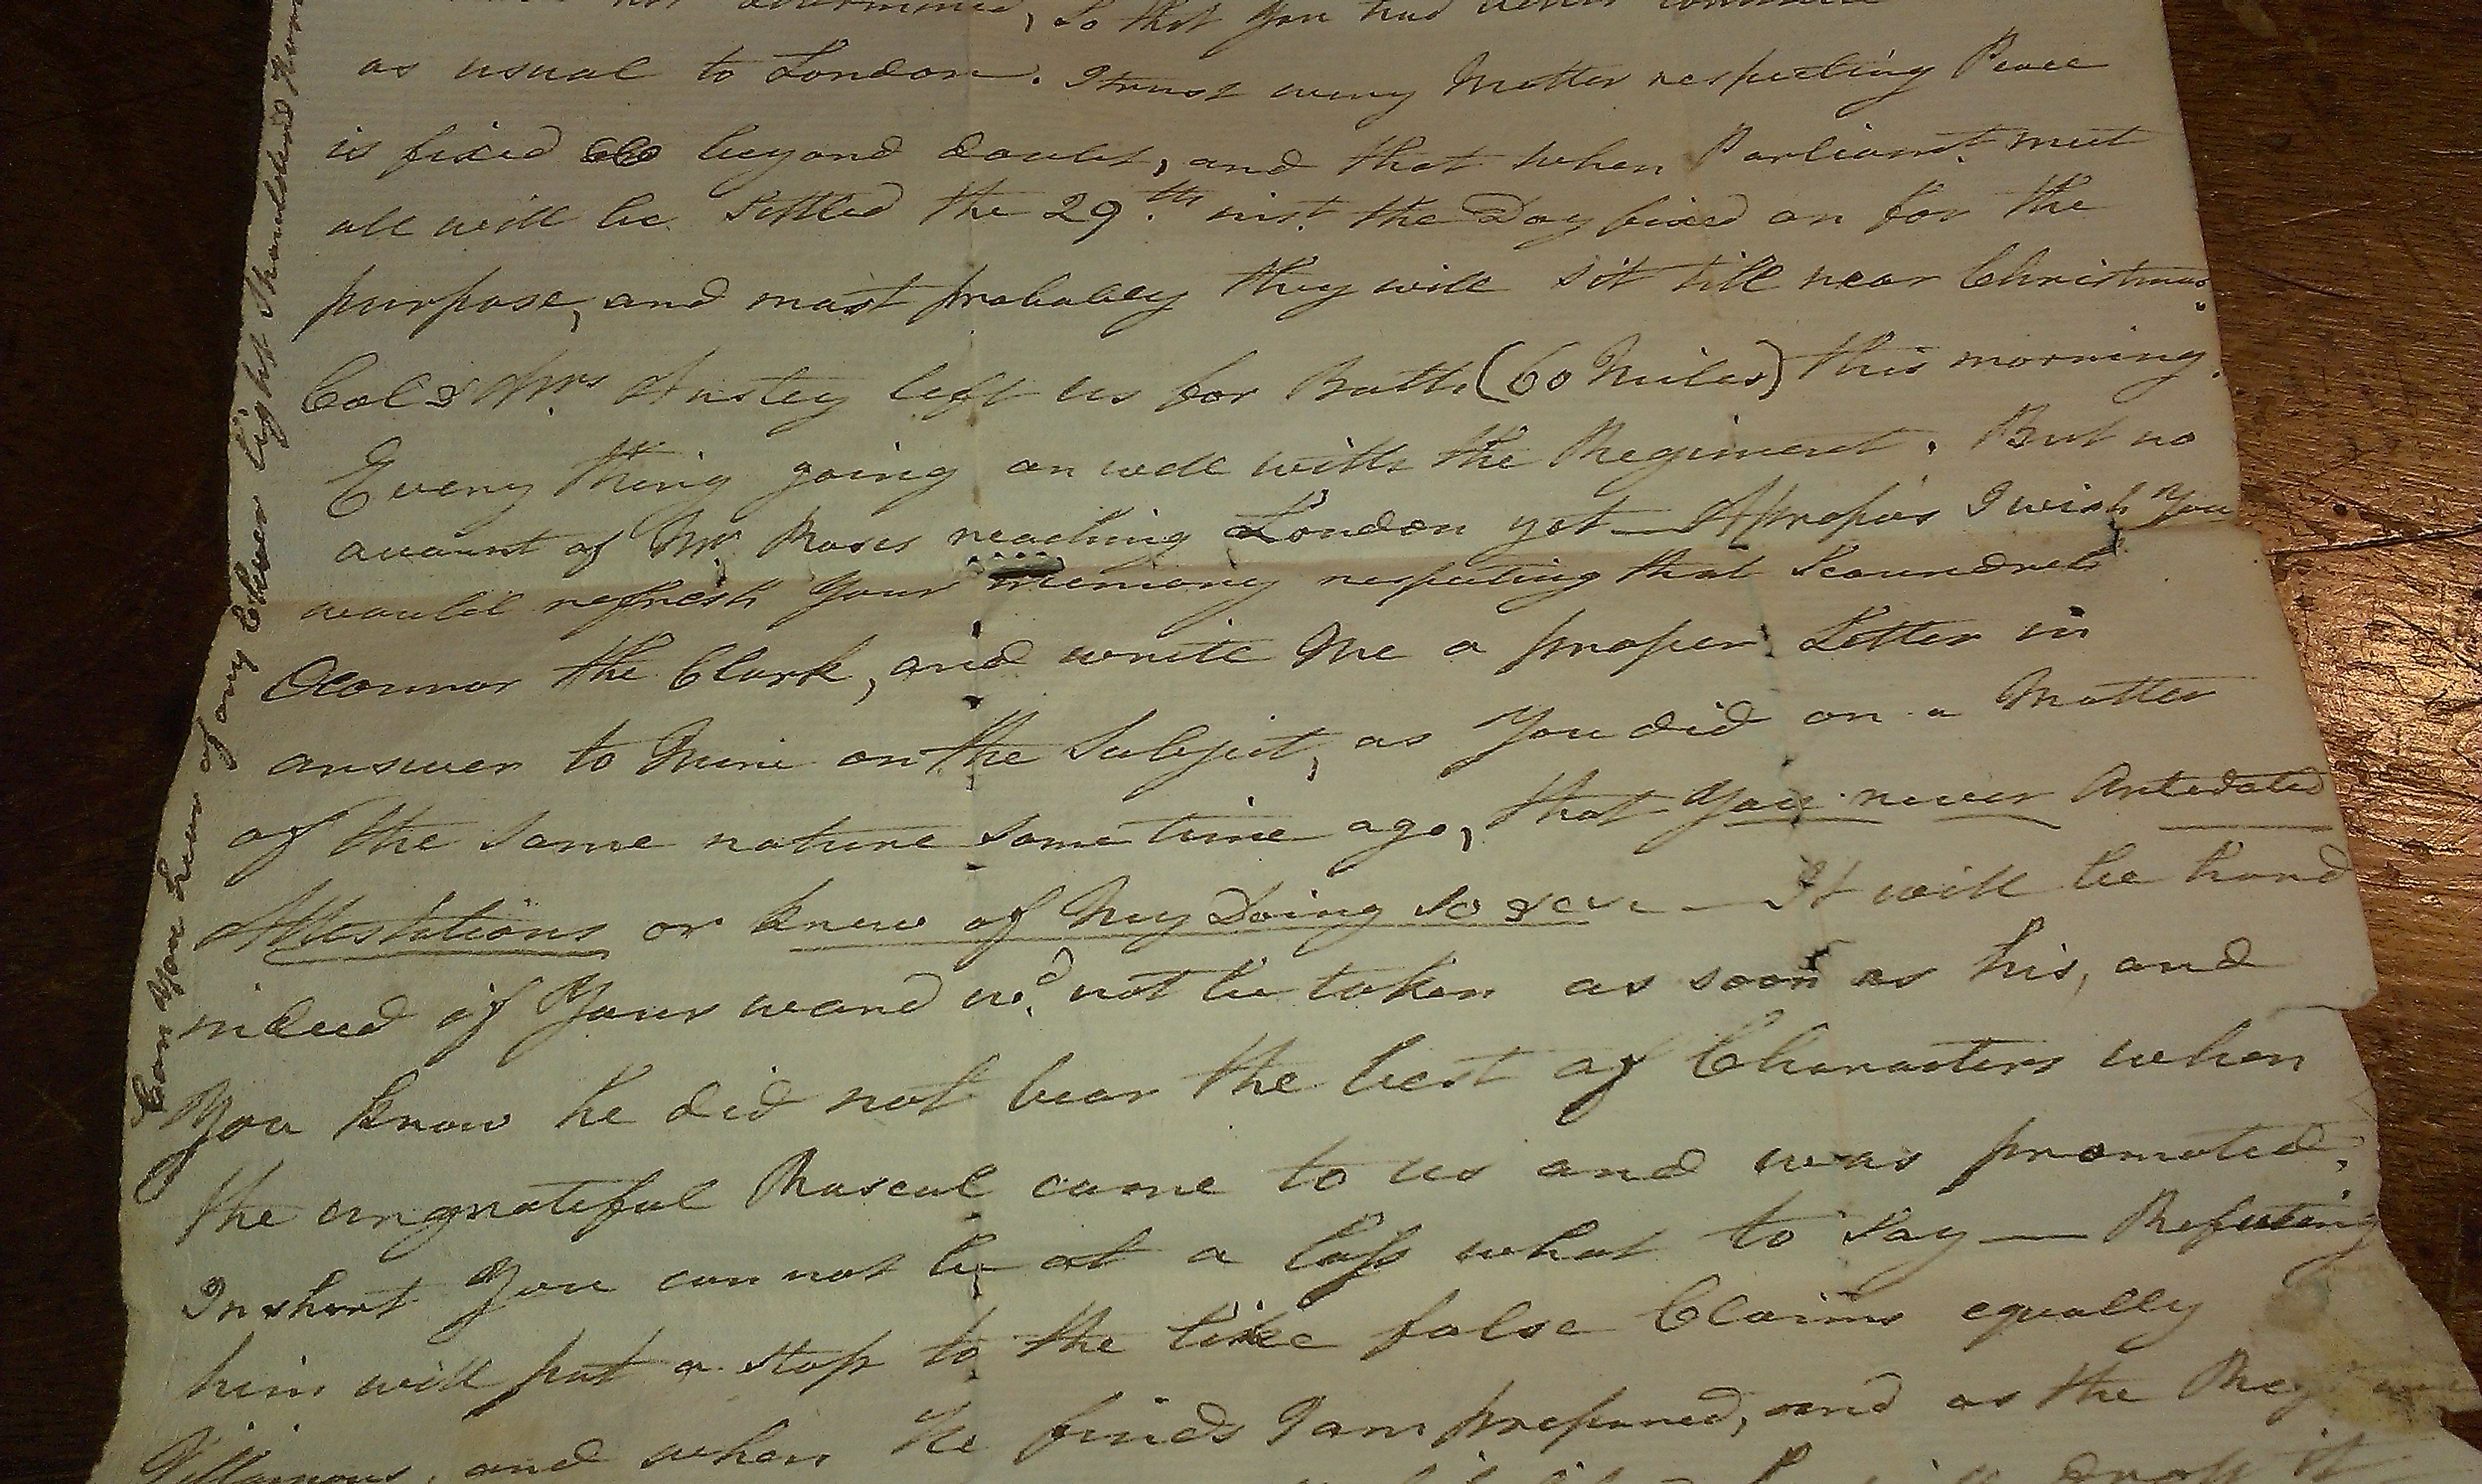 not determined, So that you had better
as usual to London. I trust every Matter respecting Peace
is fixed beyond doubt, and that when Parliamt. meet
all will be settled the 29.th inst. the Day fixed on for the
purpose, and most probably they will sit till near Christmas.
Col & Mrs Anstey left us for Bath (60 Miles) this morning.
Every thing going on well with the Regiment. But no
account of Mr. Roses reaching London yet — Apropos I wish You
would refresh Your memory respecting that Scoundrel
Oconnor the Clark, and write Me a proper Letter in
answer to Mine on the Subject, as You did on a Matter
of the same nature some time ago, that You never Antedated
Attestations or knew of My Doing so &c &c — It will be hard
indeed if Your word wd. not be taken as soon as his, and
You know he did not bear the best of Characters when
the ungrateful Rascal came to us and was promoted.
In short You can not be at a loss what to say — Refuting
him will put a stop to the like false Claims equally
Villainous, and when He finds I am prepared, and as the
drop it
Can You hear of any Silver light Shoulderd